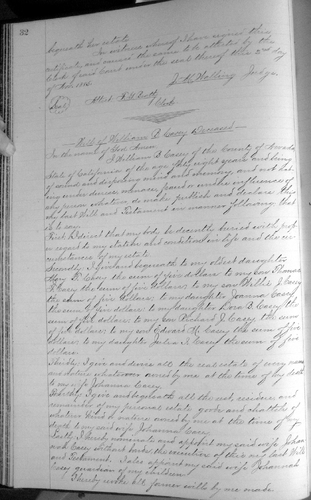 32
bequeath his estate.
In witness whereof I have signed this
certificate and caused the same to be attested by the
Clerk of said Court under the seal thereof this 2nd day
of 1886
J. M. Walling Judge
(Seal) Attest
Clerk
Will of William B. Casey Deceased
In the name of God Amen
I William B. Casey of the County of Nevada
State of California of the age of fifty eight years and being
of sound and disposing mind and memory and not act-
ing under duress menace fraud or undue influence of
any person whatever do make publish and declare this
my last Will and Testament in manner following that
is to say
First I direct that my body be decently buried with proper
regard to my station and condition in life and the cir-
cumstances of my estate
Secondly I give and bequeath to my oldest daughter
Mary E. the sum of five dollars to my son Thomas
F. Casey the sum of five dollars to my son J. Casey
the sum of five dollars to my daughter Joanna Casey
the sum of five dollars to my daughter Dora B. Casey the
sum of five dollars to my son Richard J. Casey the sum
of five dollars to my son Edward M. Casey the sum of five
dollars to my daughter Julia A. Casey the sum of five
dollars
Thirdly I give and devise all the real estate of every name
and nature whatever owned by me at the time of my death
to my wife Johanna Casey
Fourthly I give and bequeath all the rest residue and
remainder of my personal estate goods and chattels of
whatever kind or nature owned by me at the time of my
death to my said wife Johannah Casey
Lastly I hereby nominate and appoint my said wife Johan-
nah Casey without bonds the executrix of this my last Will
and Testament. I also appoint my said wife Johannah
Casey guardian of my children
I hereby revoke all former wills by me made